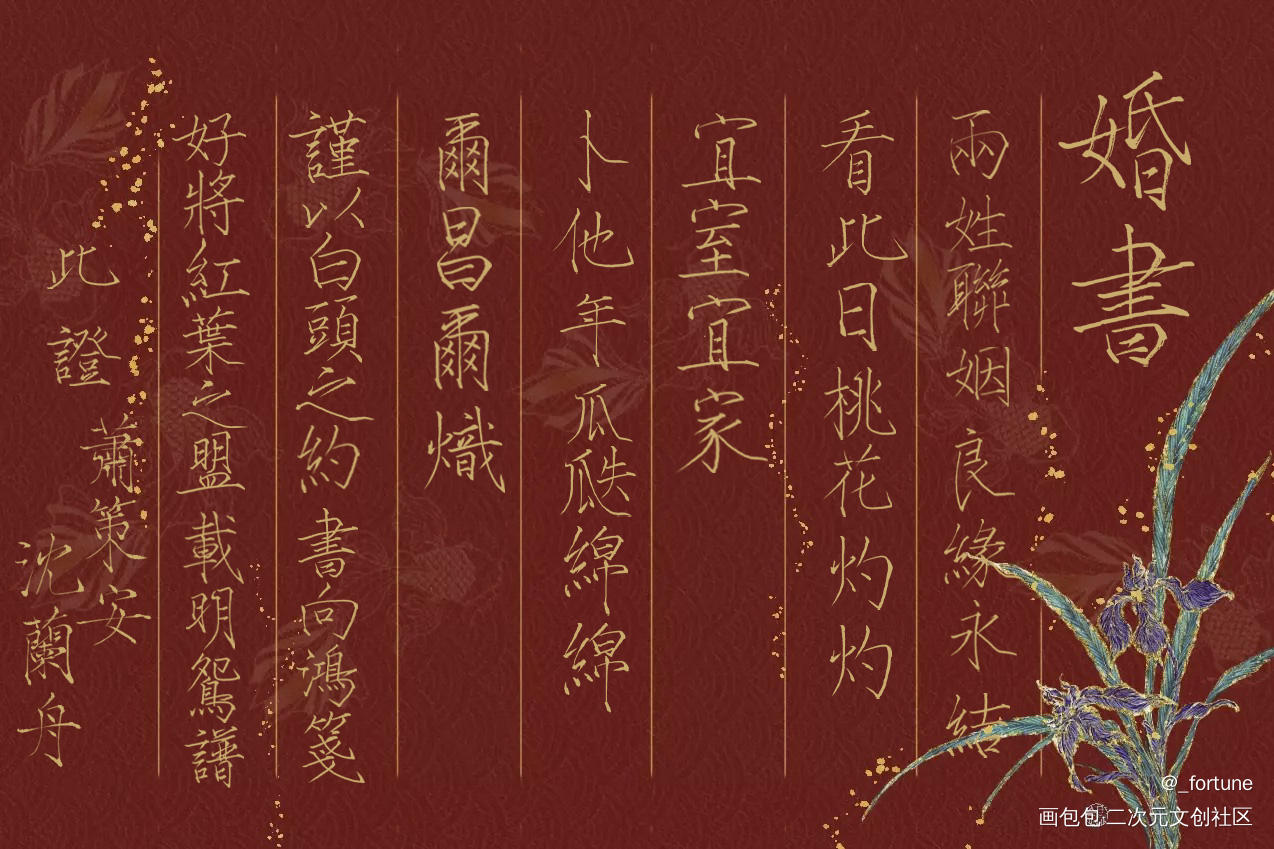 婚書
兩姓聯姻良緣永結
看此日桃花灼灼
宜室宜家
卜他年瓜瓞綿綿
爾昌爾熾
謹以白頭之約書向鴻箋
好將紅葉之盟載明鴛譜
此證
蕭策安
沈蘭舟
@_fortune
画包包二次元文创社区